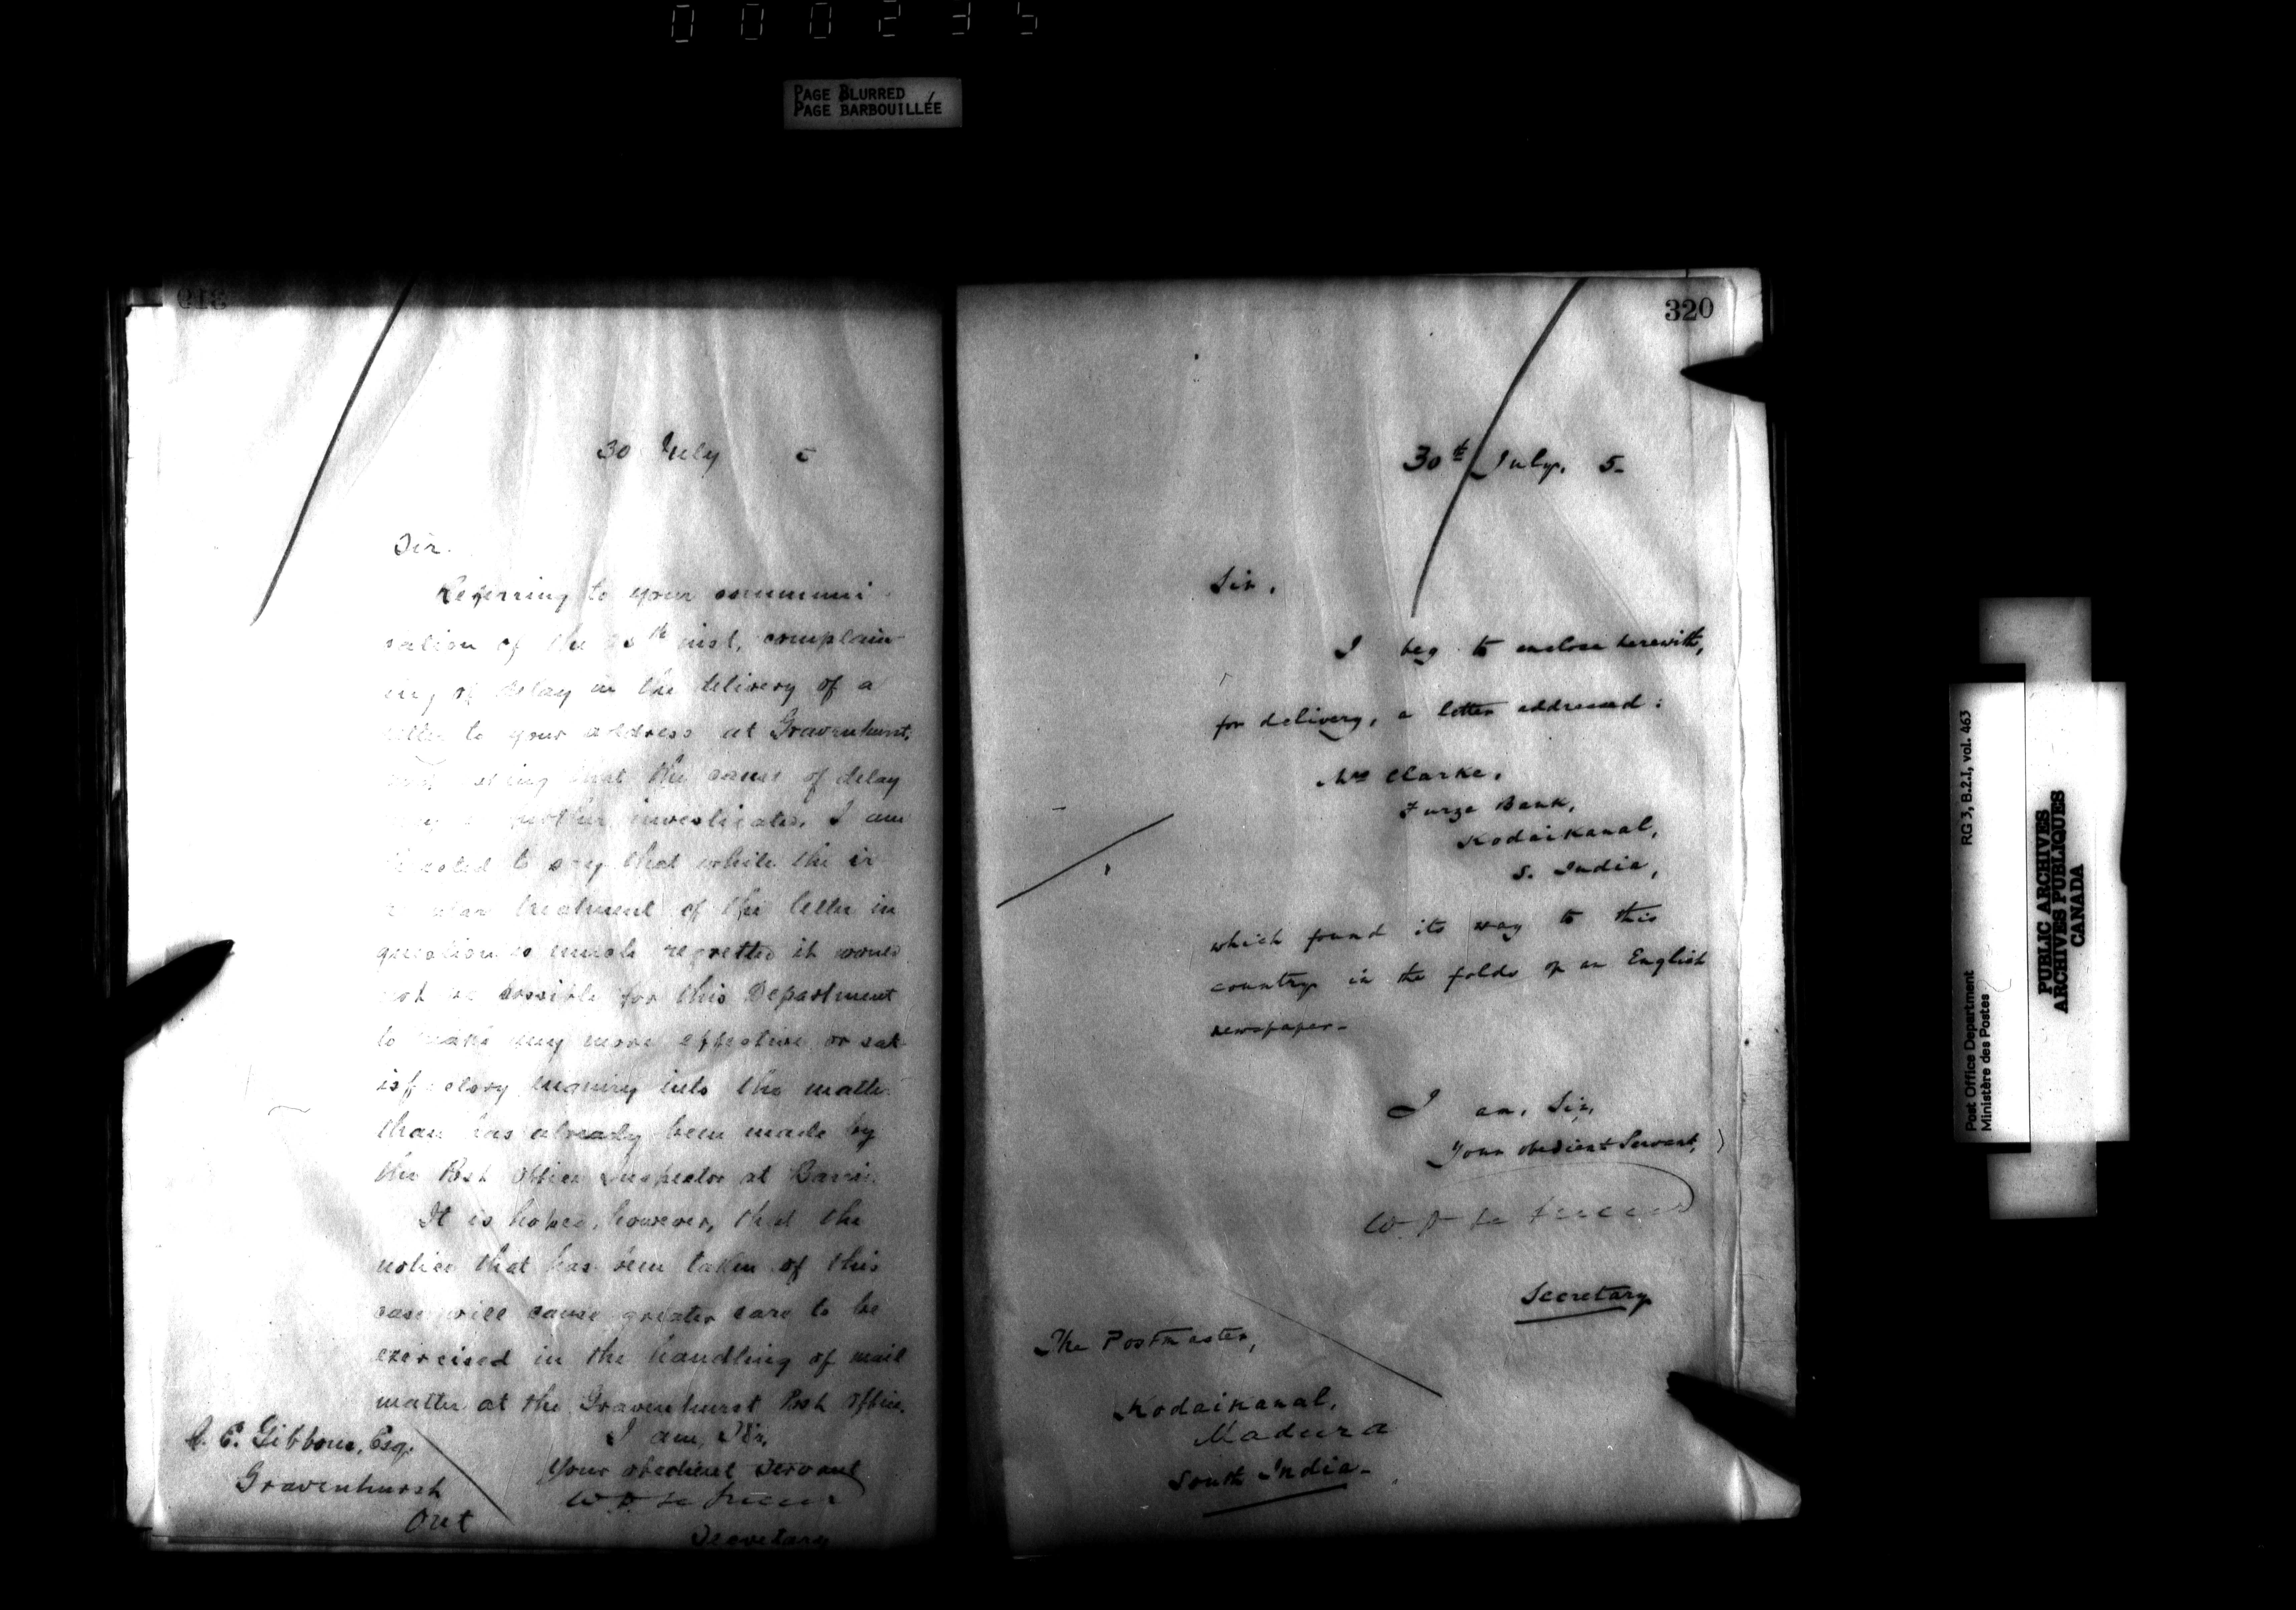 000235
PAGE BLURRED
PAGE BARBOUILLÉE
319
30 July 5
Sir.
Referring to your communi-
cation of the inst, complain-
ing of delay in the delivery of a
letter to your address at Gravenhurst,
that the cause of delay
investigated, I am
directed to say that while the ir-
regular treatment of the letter in
question is much regretted it would
not be possible for this Department
to make any more effective or sat-
isfactory inquiry into the matter
than has already been made by
the Post Office Inspector at Barrie.
It is hoped, however, that the
notice that has been taken of this
case will cause greater care to be
exercised in the handling of mail
matter at the Gravenhurst Post Office.
I am, Sir,
Your obedient Servant
Secretary
E. Gibbons, Esq.
Gravenhurst
Ont
320
30th July. 5-
Sir,
I beg to enclose herewith,
for delivery, a letter addressed:
Mrs Clarke,
Furze Bank,
Kodaikanal,
S. India,
which found its way to this
country in the folds of an English
newspaper-
I am, Sir,
Your obedient Servant,
Secretary
The Postmaster,
Kodaikanal,
Madura
South India-
Post Office Department
Ministère des Postes
RG 3, B.2.I, vol. 463
PUBLIC ARCHIVES
ARCHIVES PUBLIQUES
CANADA